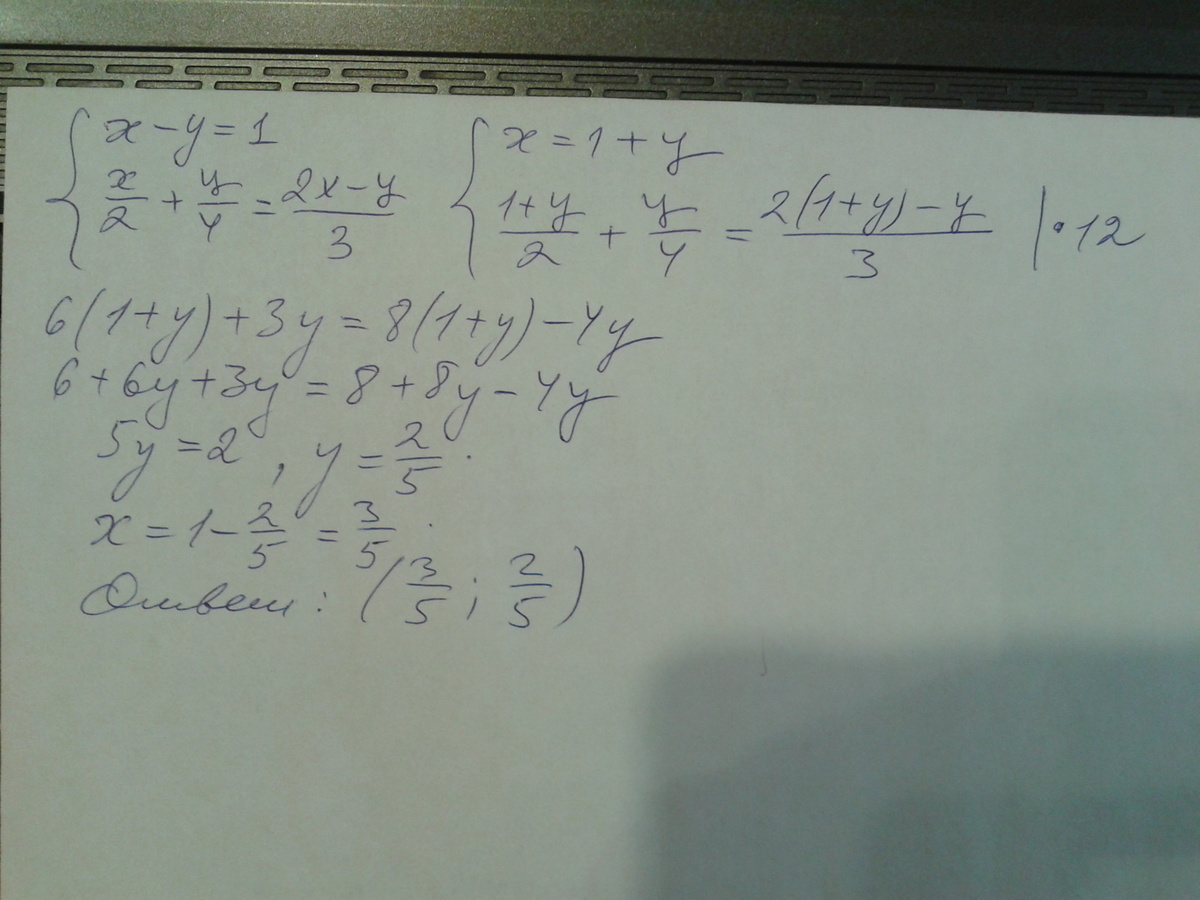 { x - y = 1
x/2 + y/4 = (2x - y)/3
{ x = 1 + y
(1+y)/2 + y/4 = (2(1+y) - y)/3 | · 12
6(1+y) + 3y = 8(1+y) - 4y
6 + 6y + 3y = 8 + 8y - 4y
5y = 2 , y = 2/5 .
x = 1 - 2/5 = 3/5 .
Ответ: (3/5 ; 2/5)